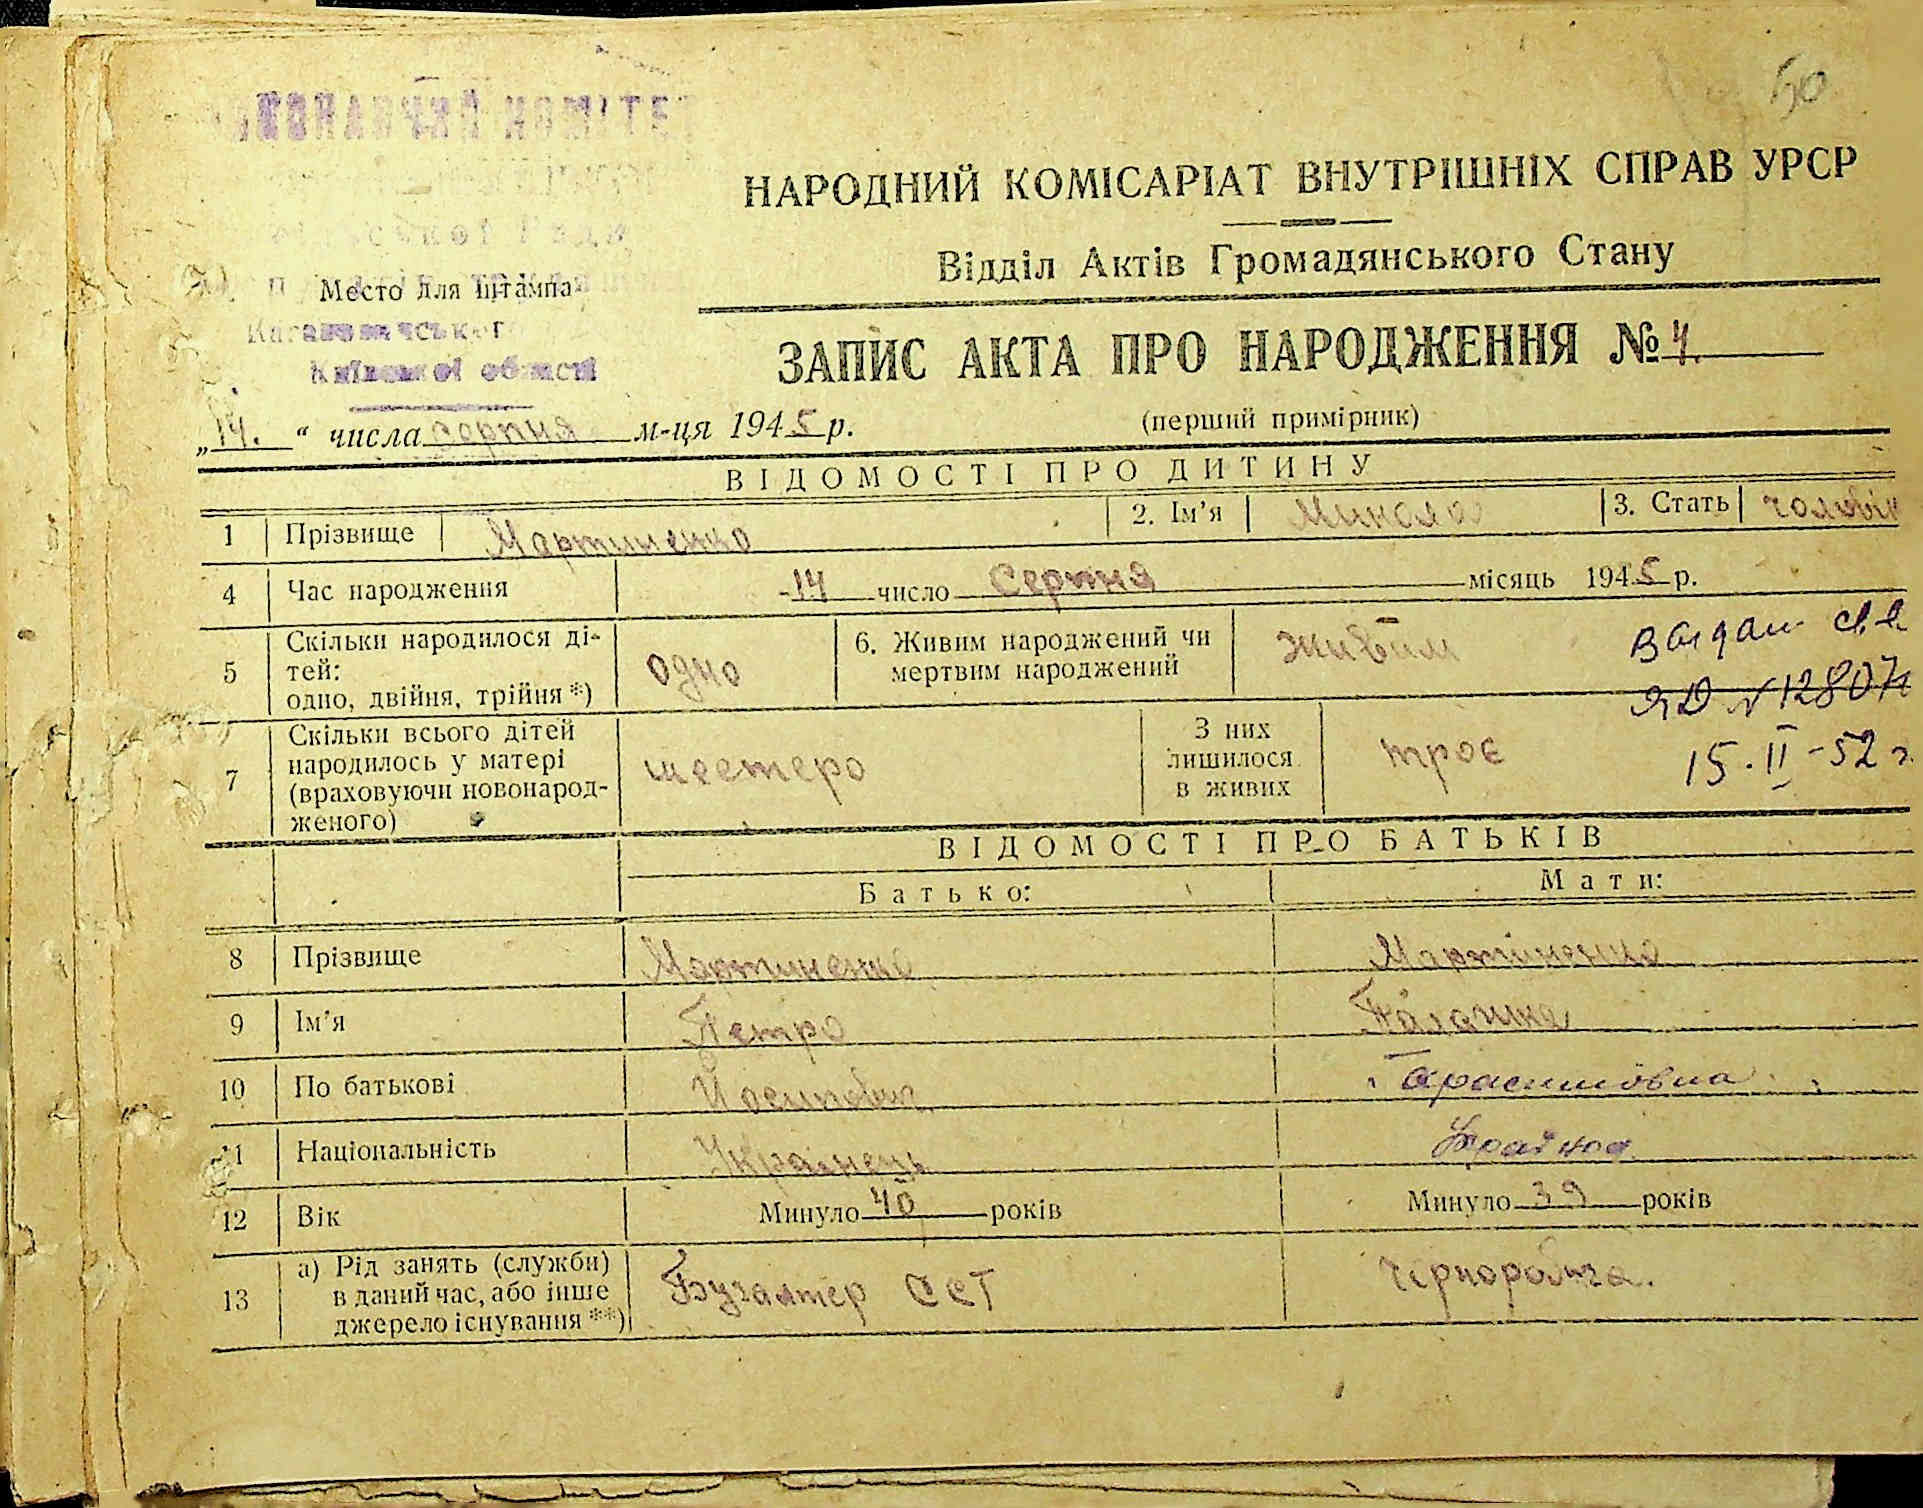 50
НАРОДНИЙ КОМІСАРІАТ ВНУТРІШНІХ СПРАВ УРСР
Відділ Актів Громадянського Стану
Место для штампа
Київської області
ЗАПИС АКТА ПРО НАРОДЖЕННЯ № 4.
„14.“ числа серпня м-ця 1945 р.
(перший примірник)
ВІДОМОСТІ ПРО ДИТИНУ
1 Прізвище Мартиненко 2. Ім'я Микола 3. Стать чоловік
4 Час народження 14 число Серпня місяць 1945 р.
5 Скільки народилося ді-
тей:
одно, двійня, трійня *) одно 6. Живим народжений чи
мертвим народжений живим
ЯД № 128071
15.II-52 г.
7 Скільки всього дітей
народилось у матері
(враховуючи новонарод-
женого) шестеро З них
лишилося
в живих троє
ВІДОМОСТІ ПРО БАТЬКІВ
Батько: Мати:
8 Прізвище Мартиненко Мартіненко
9 Ім'я Петро Палашка
10 По батькові Йосипович Тарасимовна
11 Національність Українець
12 Вік Минуло 40 років Минуло 39 років
13 а) Рід занять (служби)
в даний час, або інше
джерело існування **) Бугалтер ССТ Чорноробоча.